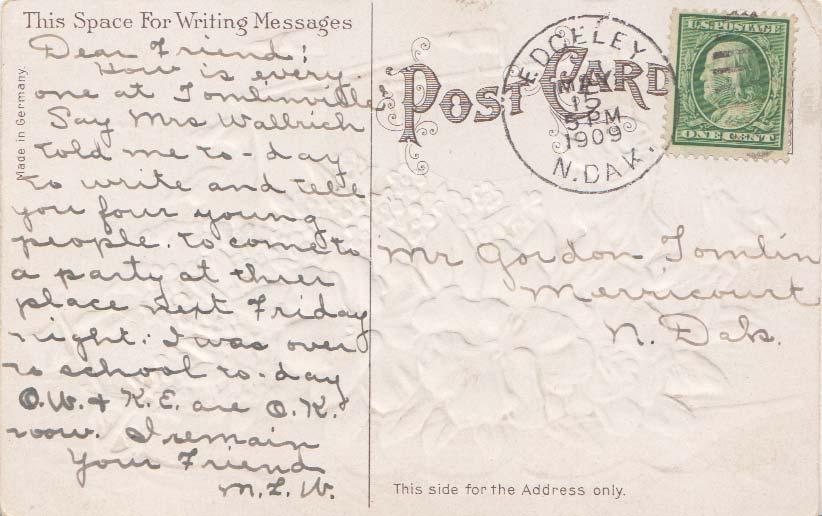 This Space For Writing Messages
Dear Friend!
How is every
one at Tomlinville
Say Mrs Wallrich
told me to-day
to write and tell
you four young
people. to come to
a party at thier
place next Friday
night. I was over
to school to-day
O.W. & K.E. are O.K.
now. I remain
Your Friend
M.L.W.
Made in Germany.
POST CARD
EDGELEY
MAY
15
5 PM
1909
N. DAK.
U.S. POSTAGE
ONE CENT
Mr Gordon Tomlin
Merricourt
N. Dak.
This side for the Address only.